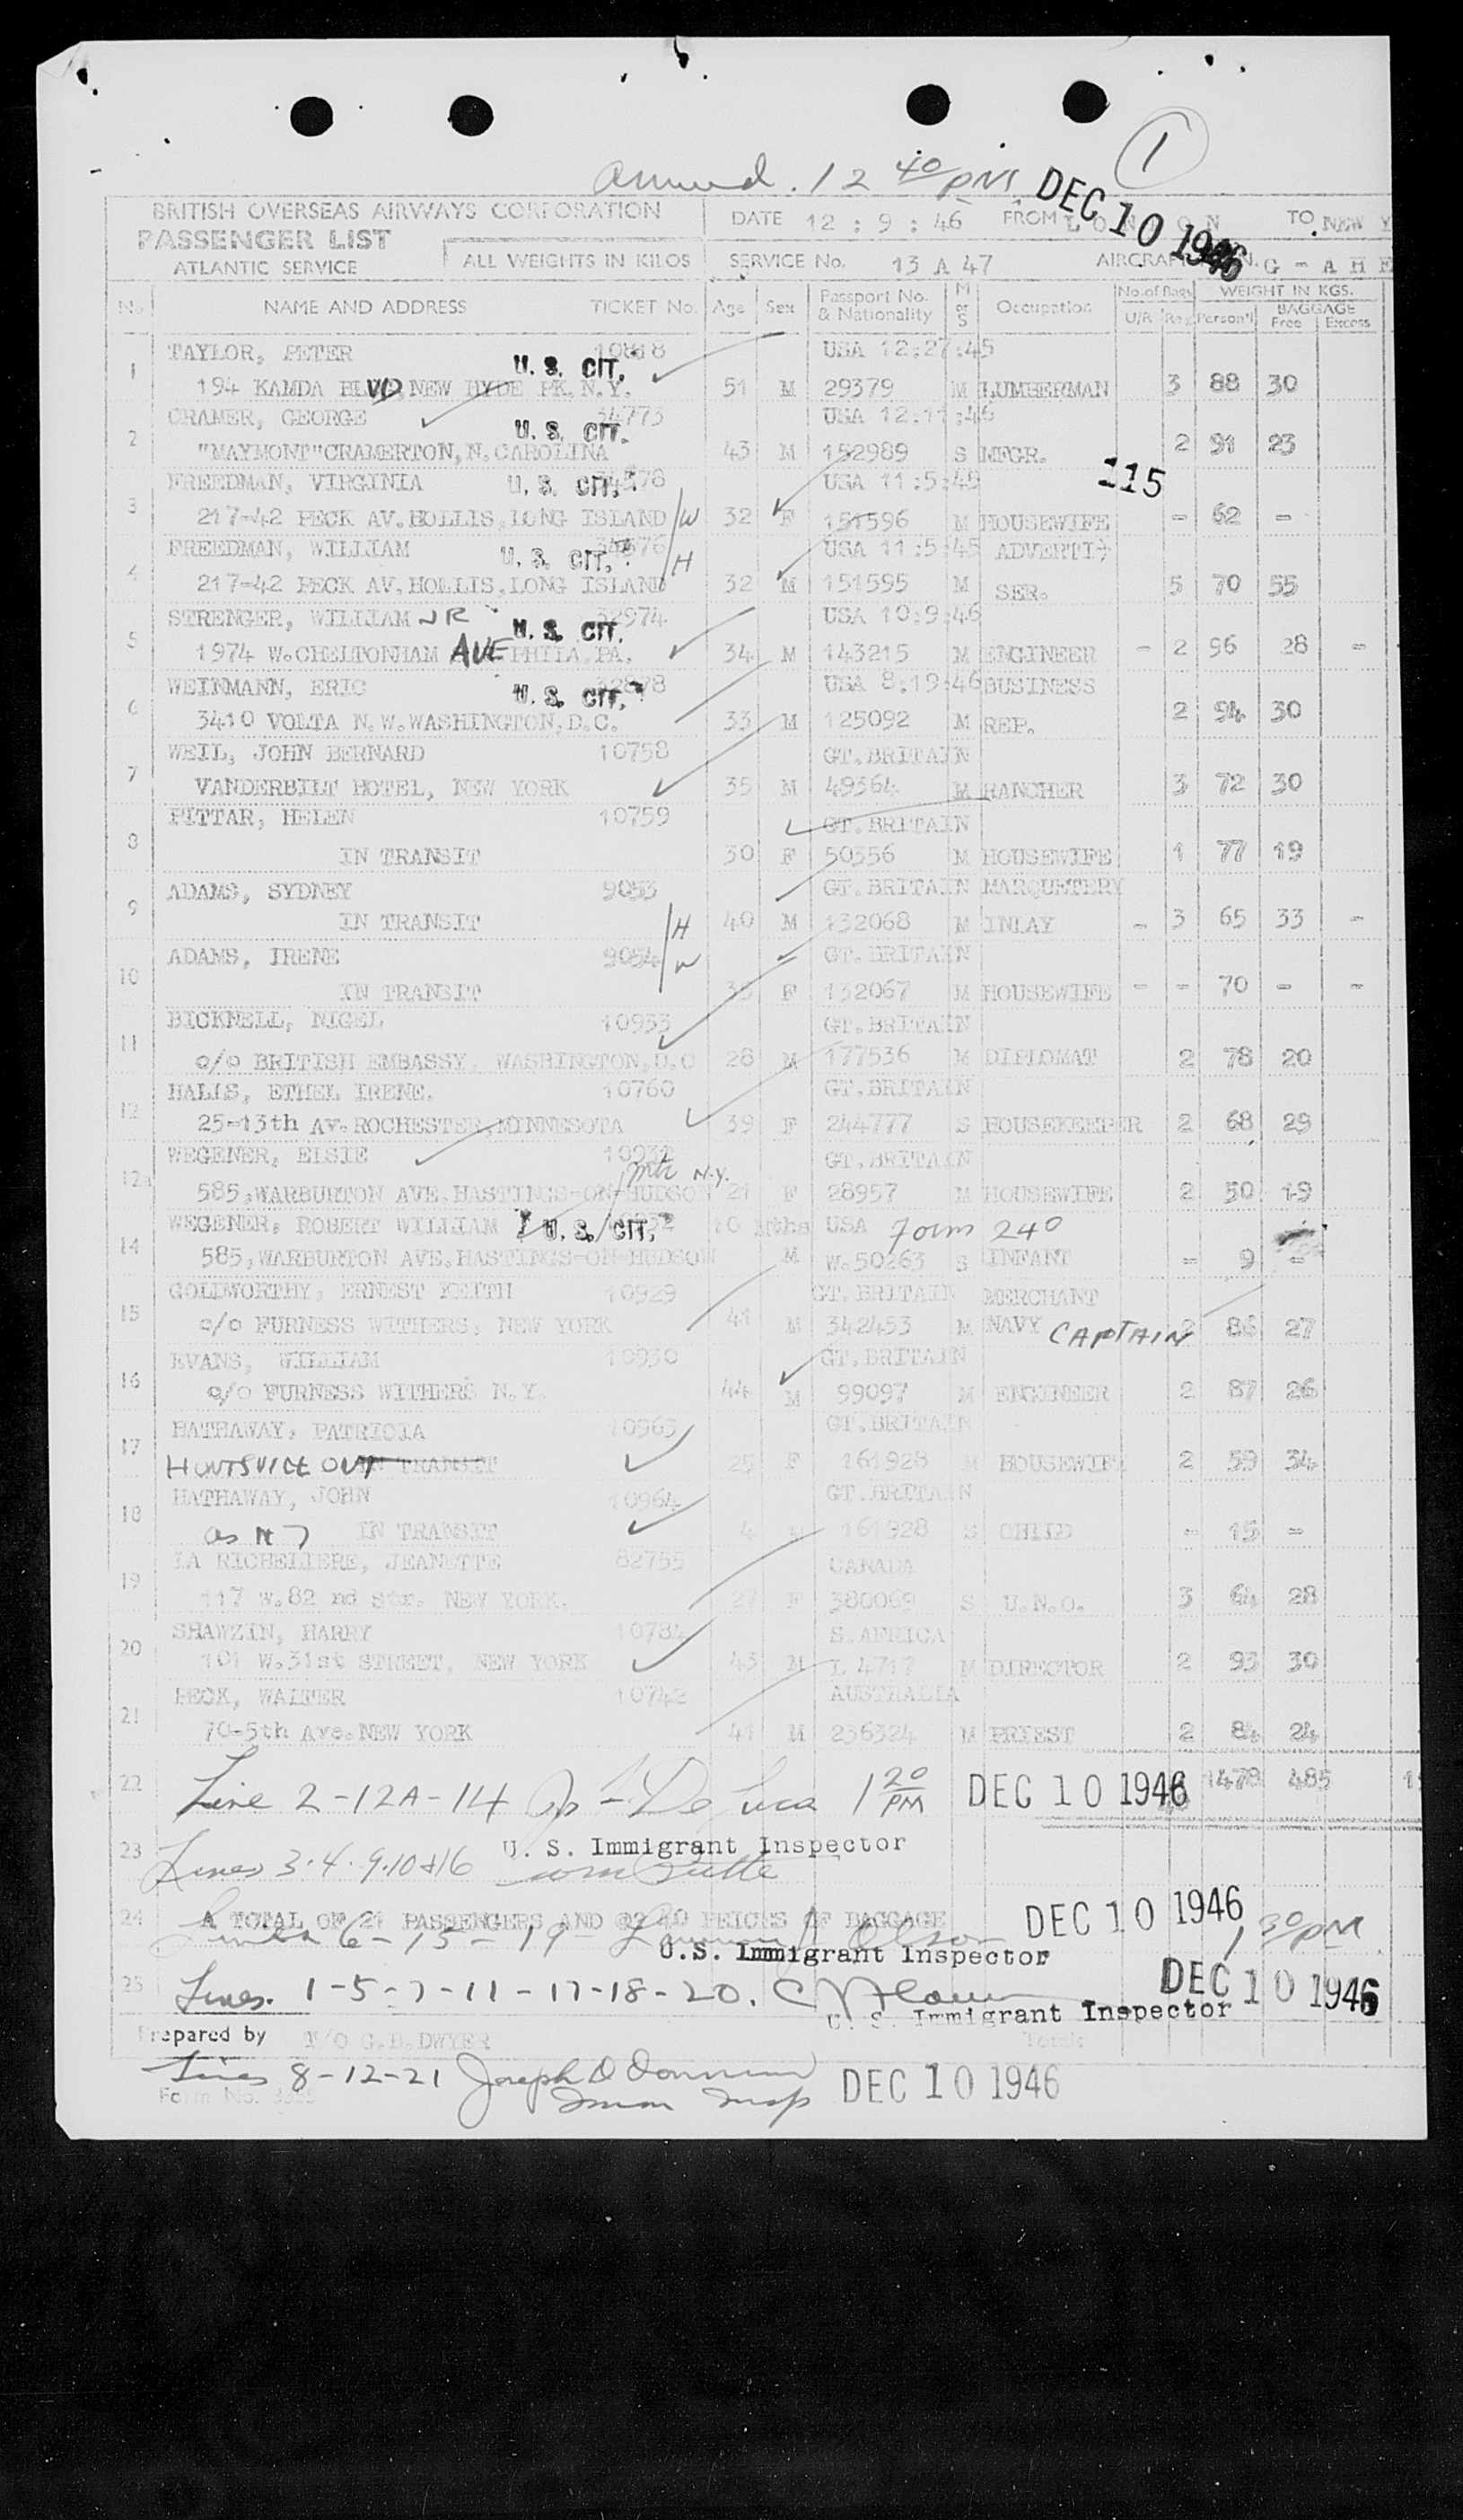 1
Arrived. 12 40 PM. DEC 10 1946
BRITISH OVERSEAS AIRWAYS CORPORATION
PASSENGER LIST
ATLANTIC SERVICE
ALL WEIGHTS IN KILOS
DATE 12 : 9 : 46 FROM TO NEW Y
SERVICE No. 13 A 47 G - A H
No. NAME AND ADDRESS TICKET No. Age Sex Passport No. & Nationality M or S Occupation No. of Bags U/R Reg WEIGHT IN KGS. Person'l BAGGAGE Free Excess
TAYLOR, PETER 10818 USA 12:27:45
U. S. CIT.
1 194 KAMDA BLVD, NEW HYDE PK, N.Y. 51 M 29379 M LUMBERMAN 3 88 30
CRAMER, GEORGE 34773 USA 12:11:46
U. S. CIT.
2 "MAYMONT" CRAMERTON, N. CAROLINA 43 M 152989 S MFGR. 2 91 23
115
FREEDMAN, VIRGINIA U. S. CIT. USA 11:5:45
3 217-42 PECK AV. HOLLIS, LONG ISLAND W 32 F 151596 M HOUSEWIFE - 62 -
FREEDMAN, WILLIAM U. S. CIT. USA 11:5:45 ADVERTI
4 217-42 PECK AV. HOLLIS, LONG ISLAND H 32 M 151595 M SER. 5 70 55
STRENGER, WILLIAM JR 32974 USA 10:9:46
U. S. CIT.
5 1974 W. CHELTONHAM AVE PHILA. PA. 34 M 143215 M ENGINEER - 2 96 28 -
WEINMANN, ERIC 32878 USA 8:19:46 BUSINESS
U. S. CIT.
6 3410 VOLTA N.W. WASHINGTON, D.C. 33 M 125092 M REP. 2 94 30
WEIL, JOHN BERNARD 10758 GT. BRITAIN
7 VANDERBILT HOTEL, NEW YORK 35 M 49364 M RANCHER 3 72 30
PITTAR, HELEN 10759 GT. BRITAIN
8 IN TRANSIT 30 F 50356 M HOUSEWIFE 1 77 19
ADAMS, SYDNEY 9053 GT. BRITAIN MARQUETERY
9 IN TRANSIT H 40 M 132068 M INLAY - 3 65 33 -
ADAMS, IRENE 9054 W GT. BRITAIN
10 IN TRANSIT F 132067 M HOUSEWIFE - - 70 - -
BICKNELL, NIGEL 10933 GT. BRITAIN
11 c/o BRITISH EMBASSY, WASHINGTON, D.C 28 M 177536 M DIPLOMAT 2 78 20
HALIS, ETHEL IRENE. 10760 GT. BRITAIN
12 25-13th AV. ROCHESTER, MINNESOTA 39 F 244777 S HOUSEKEEPER 2 68 29
WEGENER, ELSIE 10932 GT. BRITAIN
N.Y.
12A 585, WARBURTON AVE. HASTINGS-ON-HUDSON 21 F 28957 M HOUSEWIFE 2 50 19
WEGENER, ROBERT WILLIAM U. S. CIT. 10 mths USA Form 240
14 585, WARBURTON AVE. HASTINGS-ON-HUDSON M W.50263 S INFANT - 9 -
GOLDWORTHY, ERNEST KEITH 10929 GT. BRITAIN MERCHANT
15 c/o FURNESS WITHERS, NEW YORK 41 M 342453 M NAVY CAPTAIN 2 86 27
EVANS, WILLIAM 10930 GT. BRITAIN
16 c/o FURNESS WITHERS N.Y. 44 M 99097 M ENGINEER 2 87 26
HATHAWAY, PATRICIA 10963 GT. BRITAIN
17 HUNTSVILE ONT IN TRANSIT 25 F 161928 M HOUSEWIFE 2 59 34
HATHAWAY, JOHN 10964 GT. BRITAIN
18 as 17 IN TRANSIT 4 M 161928 S CHILD - 15 -
LA RICHELIERE, JEANETTE 82755 CANADA
19 117 W. 82 nd Str. NEW YORK. 27 F 380069 S U.N.O. 3 64 28
SHAWZIN, HARRY 10784 S. AFRICA
20 101 W. 31st STREET, NEW YORK 43 M L 4717 M DIRECTOR 2 93 30
PECK, WALTER 10742 AUSTRALIA
21 70-5th Ave. NEW YORK 41 M 236324 M PRIEST 2 84 24
22 Line 2-12A-14 De Luca 1 20 PM DEC 10 1946 1478 485
U. S. Immigrant Inspector
23 Lines 3.4.9.10 & 16
24 A TOTAL OF 21 PASSENGERS AND 40 PIECES OF BAGGAGE DEC 10 1946
6-15-19 Olson 1 30 PM
U.S. Immigrant Inspector
25 Lines. 1-5-7-11-17-18-20. DEC 10 1946
U. S. Immigrant Inspector
Prepared by F/O G.B. DWYER Totals
Lines 8-12-21 Joseph DEC 10 1946
Form No. Imm Insp